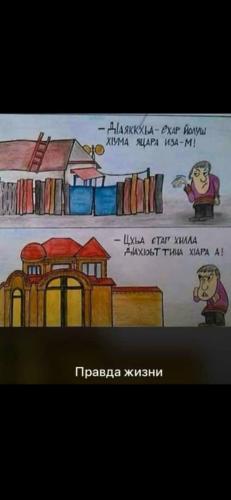 – ДIаяккхьа – Ехар йолуш
хIума яцара иза-м!
– Цхьа стаг хилла
дIахIоьттина хIара а!
Правда жизни